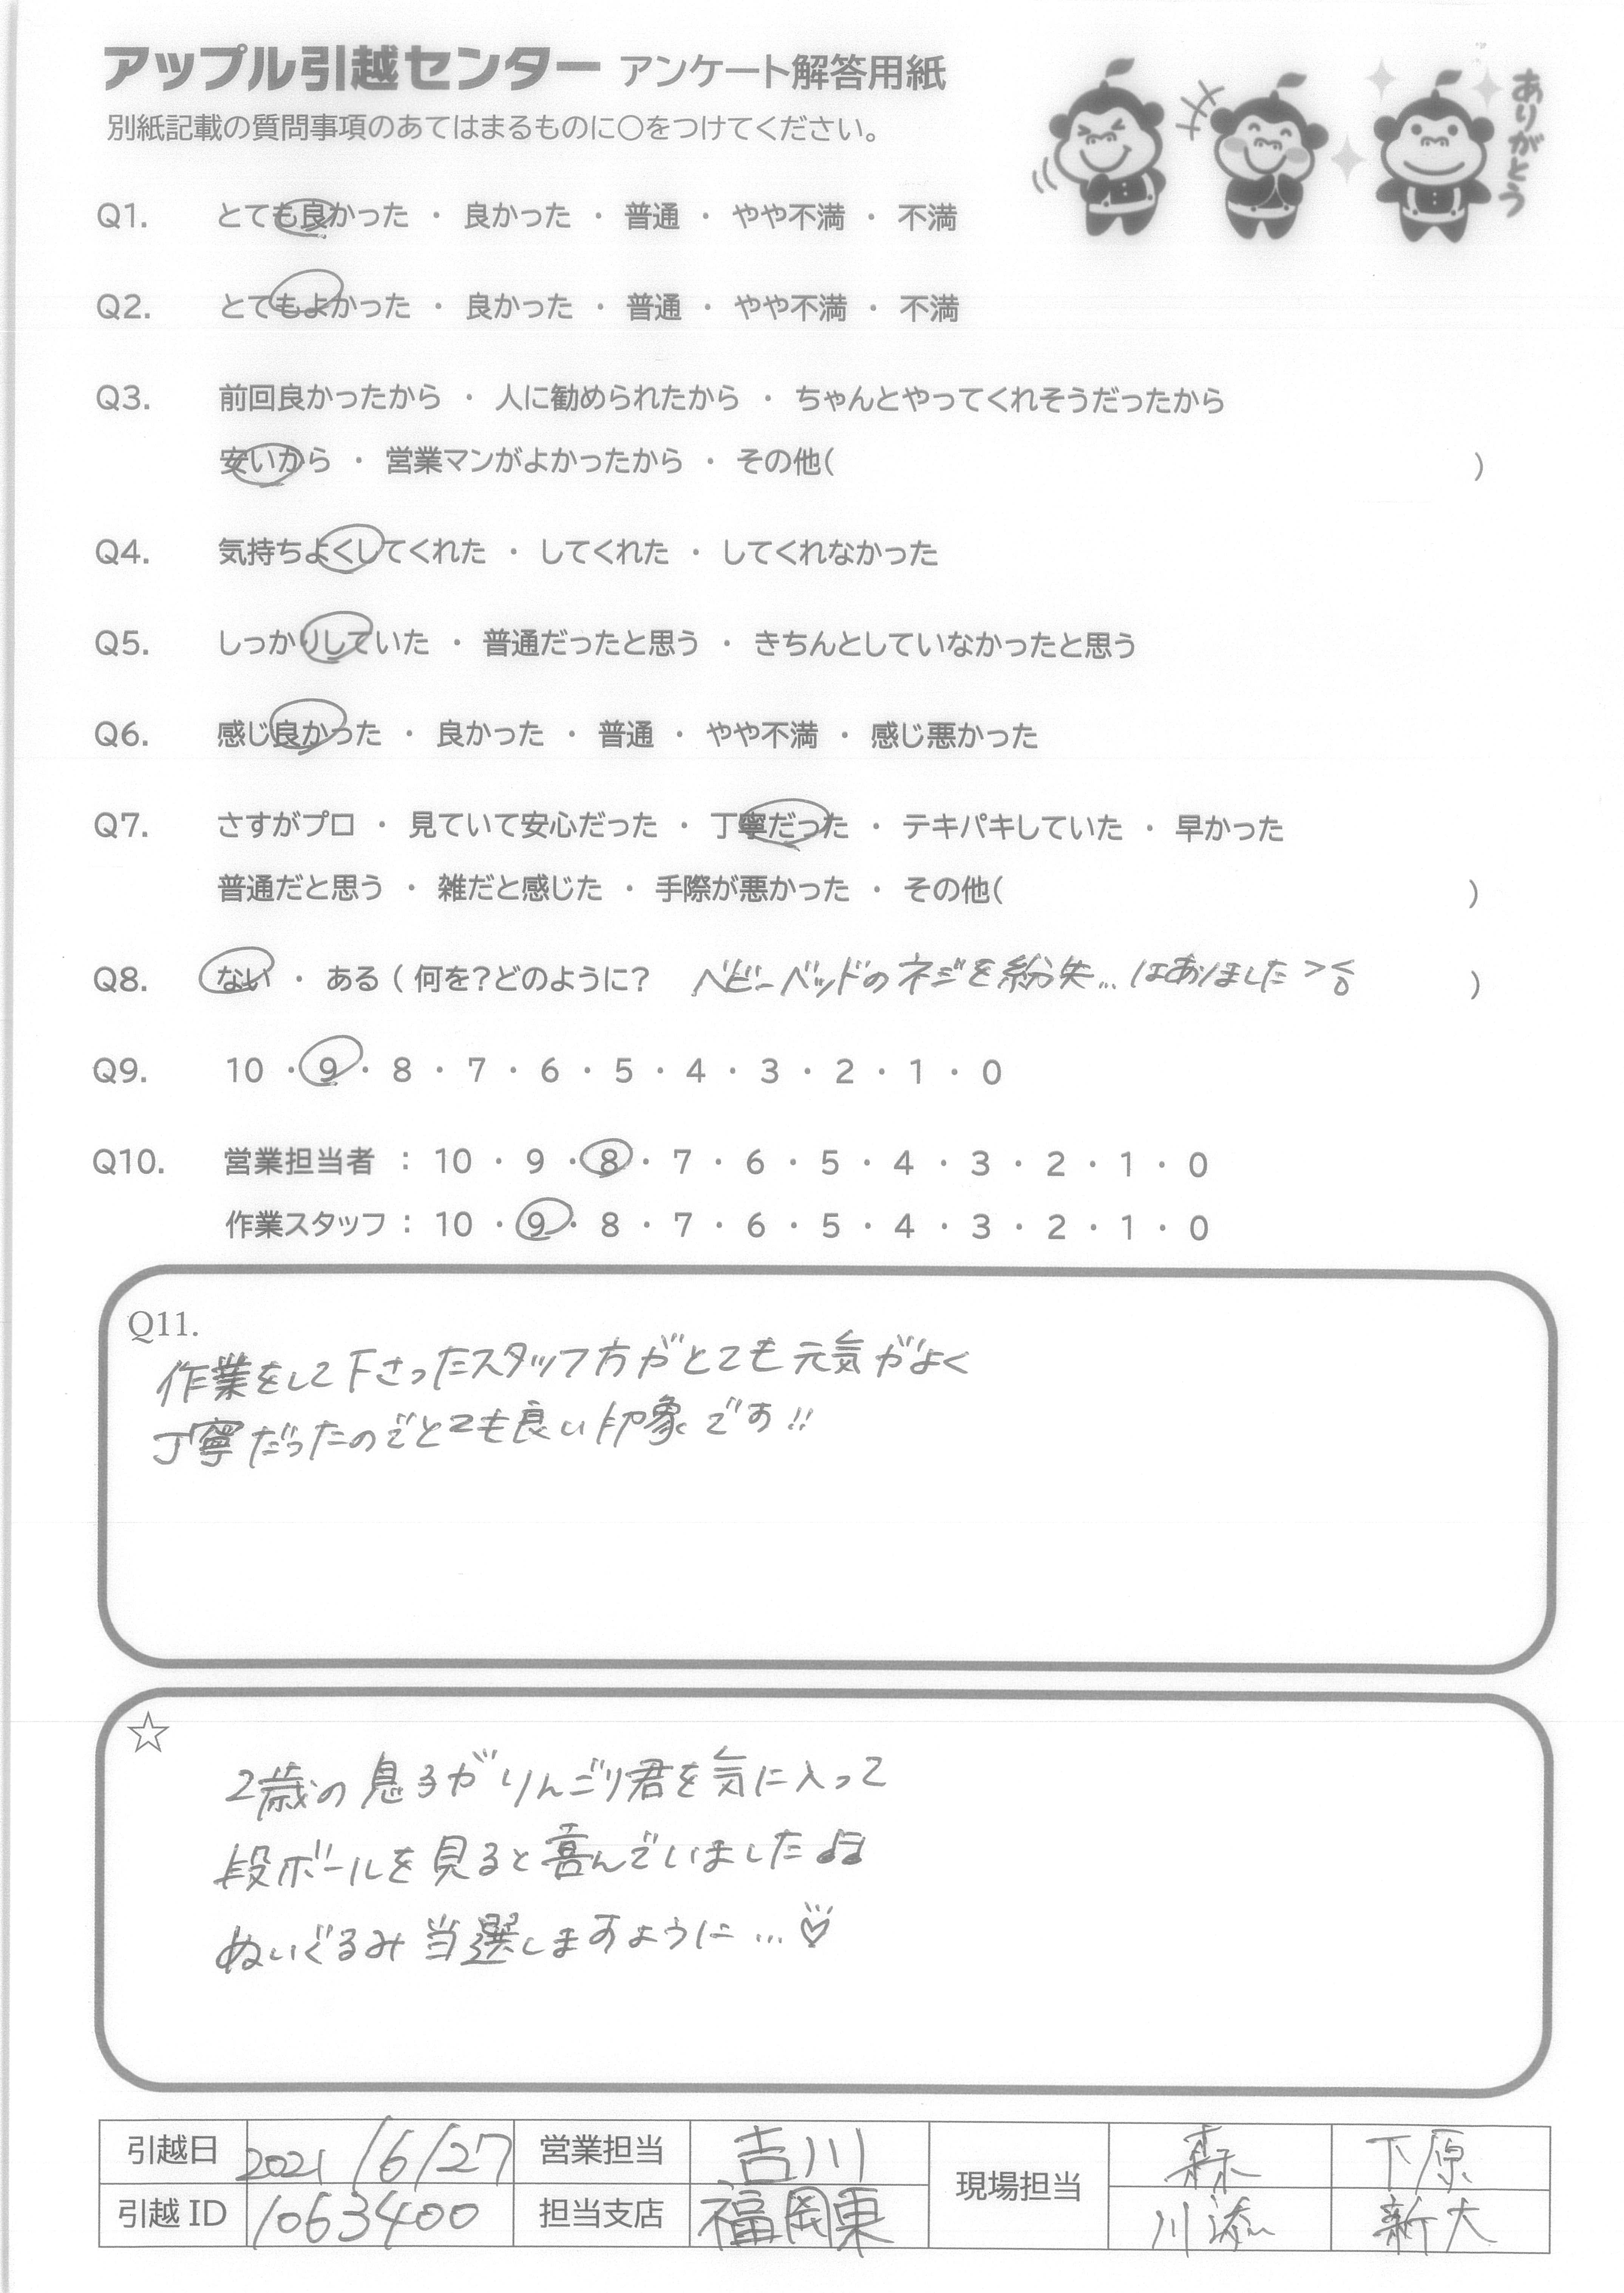 アップル引越センター アンケート解答用紙
別紙記載の質問事項のあてはまるものに○をつけてください。
ありがとう
Q1. とても良かった ・ 良かった ・ 普通 ・ やや不満 ・ 不満
Q2. とてもよかった ・ 良かった ・ 普通 ・ やや不満 ・ 不満
Q3. 前回良かったから ・ 人に勧められたから ・ ちゃんとやってくれそうだったから
安いから ・ 営業マンがよかったから ・ その他( )
Q4. 気持ちよくしてくれた ・ してくれた ・ してくれなかった
Q5. しっかりしていた ・ 普通だったと思う ・ きちんとしていなかったと思う
Q6. 感じ良かった ・ 良かった ・ 普通 ・ やや不満 ・ 感じ悪かった
Q7. さすがプロ ・ 見ていて安心だった ・ 丁寧だった ・ テキパキしていた ・ 早かった
普通だと思う ・ 雑だと感じた ・ 手際が悪かった ・ その他( )
Q8. ない ・ ある ( 何を?どのように? ベビーベッドのネジを紛失... はありました )
Q9. 10 ・ 9 ・ 8 ・ 7 ・ 6 ・ 5 ・ 4 ・ 3 ・ 2 ・ 1 ・ 0
Q10. 営業担当者 : 10 ・ 9 ・ 8 ・ 7 ・ 6 ・ 5 ・ 4 ・ 3 ・ 2 ・ 1 ・ 0
作業スタッフ : 10 ・ 9 ・ 8 ・ 7 ・ 6 ・ 5 ・ 4 ・ 3 ・ 2 ・ 1 ・ 0
Q11.
作業をして下さったスタッフ方がとても元気がよく
丁寧だったのでとても良い印象です!!
☆
2歳の息子がりんごり君を気に入って
段ボールを見ると喜んでいました♫
ぬいぐるみ当選しますように...♡
引越日 2021/6/27 営業担当 吉川 現場担当 森 下原
引越ID 1063400 担当支店 福岡東 川添 新大